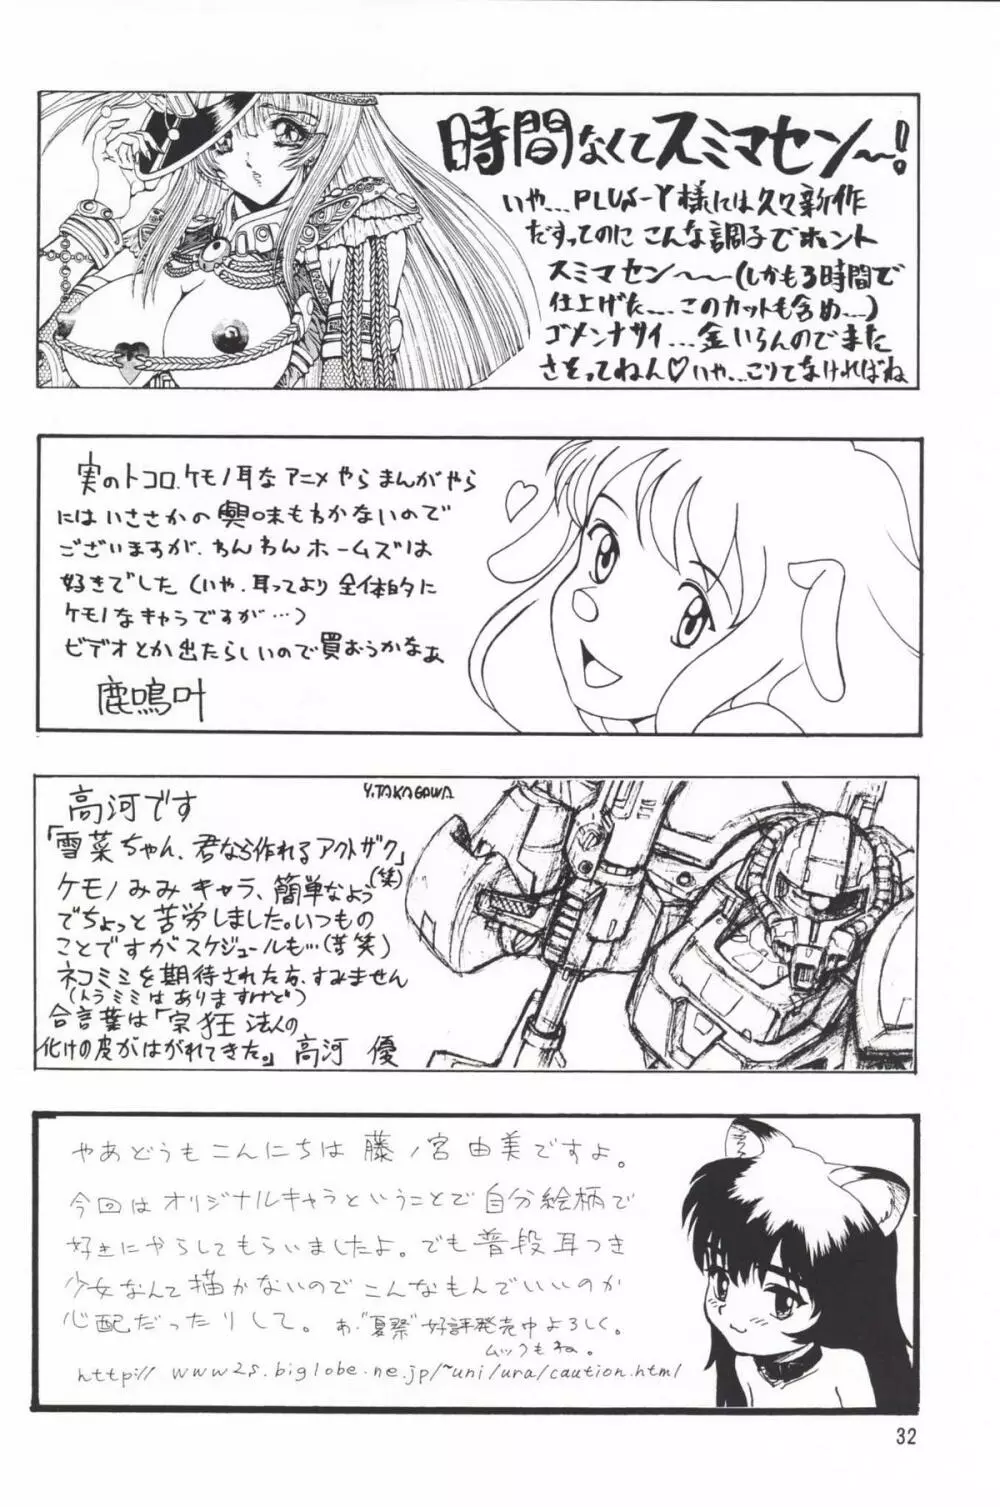 時間なくてスミマセン〜!
いや…PLUS-Y様には久々新作
だすってのに こんな調子でホント
スミマセン〜〜(しかも3時間で
仕上げた….このカットも含め…)
ゴメンナサイ…金いらんのでまた
さそってねん♡いや…こりてなければね
実のトコロ、ケモノ耳なアニメやらまんがやら
にはいささかの興味もわかないので
ございますが、わんわんホームズは
好きでした(いや、耳ってより全体的に
ケモノなキャラですが…)
ビデオとか出たらしいので買おうかなぁ
鹿鳴叶
Y.TAKAGAWA
高河です
「雪菜ちゃん、君なら作れるアクトザク」
(笑)
ケモノみみキャラ、簡単なよう
でちょっと苦労しました。いつもの
ことですがスケジュールも…(苦笑)
ネコミミを期待された方、すみません
(トラミミはありますけど)
合言葉は「宗狂法人の
化けの皮がはがれてきた。」高河 優
やあどうもこんにちは 藤ノ宮由美ですよ。
今回はオリジナルキャラということで自分絵柄で
好きにやらしてもらいましたよ。でも普段耳つき
少女なんて描かないのでこんなもんでいいのか
心配だったりして。あ、"夏祭"好評発売中よろしく。
ムックもね。
http://www2s.biglobe.ne.jp/~uni/ura/caution.html
32